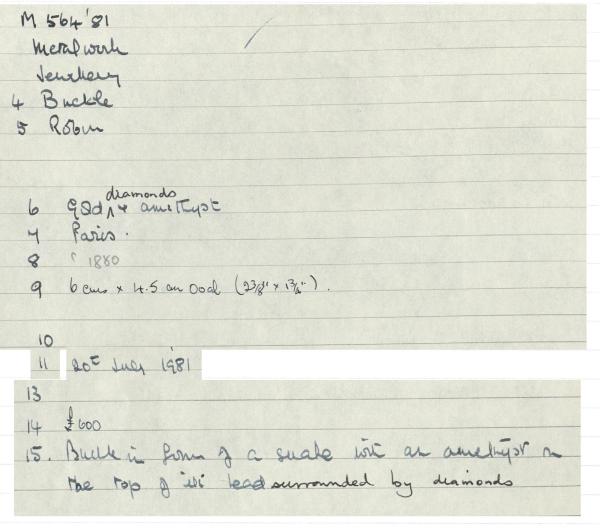 M 564'81
Metalwork
Jewellery
4 Buckle
5 Robin
diamonds
6 Gold ^ & amethyst
7 Paris.
8 c 1880
9 6 cms x 4.5 cm Oval (2 3/8" x 1 3/4").
10
11 20th July 1981
13
14 £600
15. Buckle in form of a snake with an amethyst on
the top of its head surrounded by diamonds